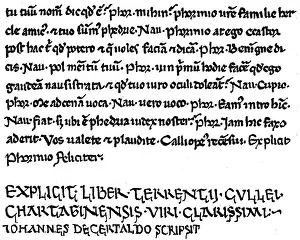 tu tuū nom̄ dic qd' ē? Phor. mihin? phormio ur̄e familie her
cle amic' ⁊ tuo sūm' phedrie. Nau. Phormio at ego castor
post hac t' qd' potero ⁊ q̄ uoles faciā ⁊ dicā. Phor. Benigne di
cis. Nau. pol m̄itū tuū. Phor. uin p'mū hodie facē qd' ego
gaudeā nausistrata ⁊ qd' tuo uiro oculi doleāt? Nau. Cupio
Phor. Me ad cenā uoca. Nau. uero uoco. Phor. Eam' intro hīc.
Nau. fiat. s; ubi ē phedria iudex noster? Phor. Iam hic faxo
aderit. Vos ualete ⁊ plaudite. Calliopi' recēsui. Explicit
Phormio feliciter.
EXPLICIT LIBER TERRENTIJ CVLLEI
CHARTAGINENSIS VIRI CLARISSIMI.
IOHANNES DE CERTALDO SCRIPSIT